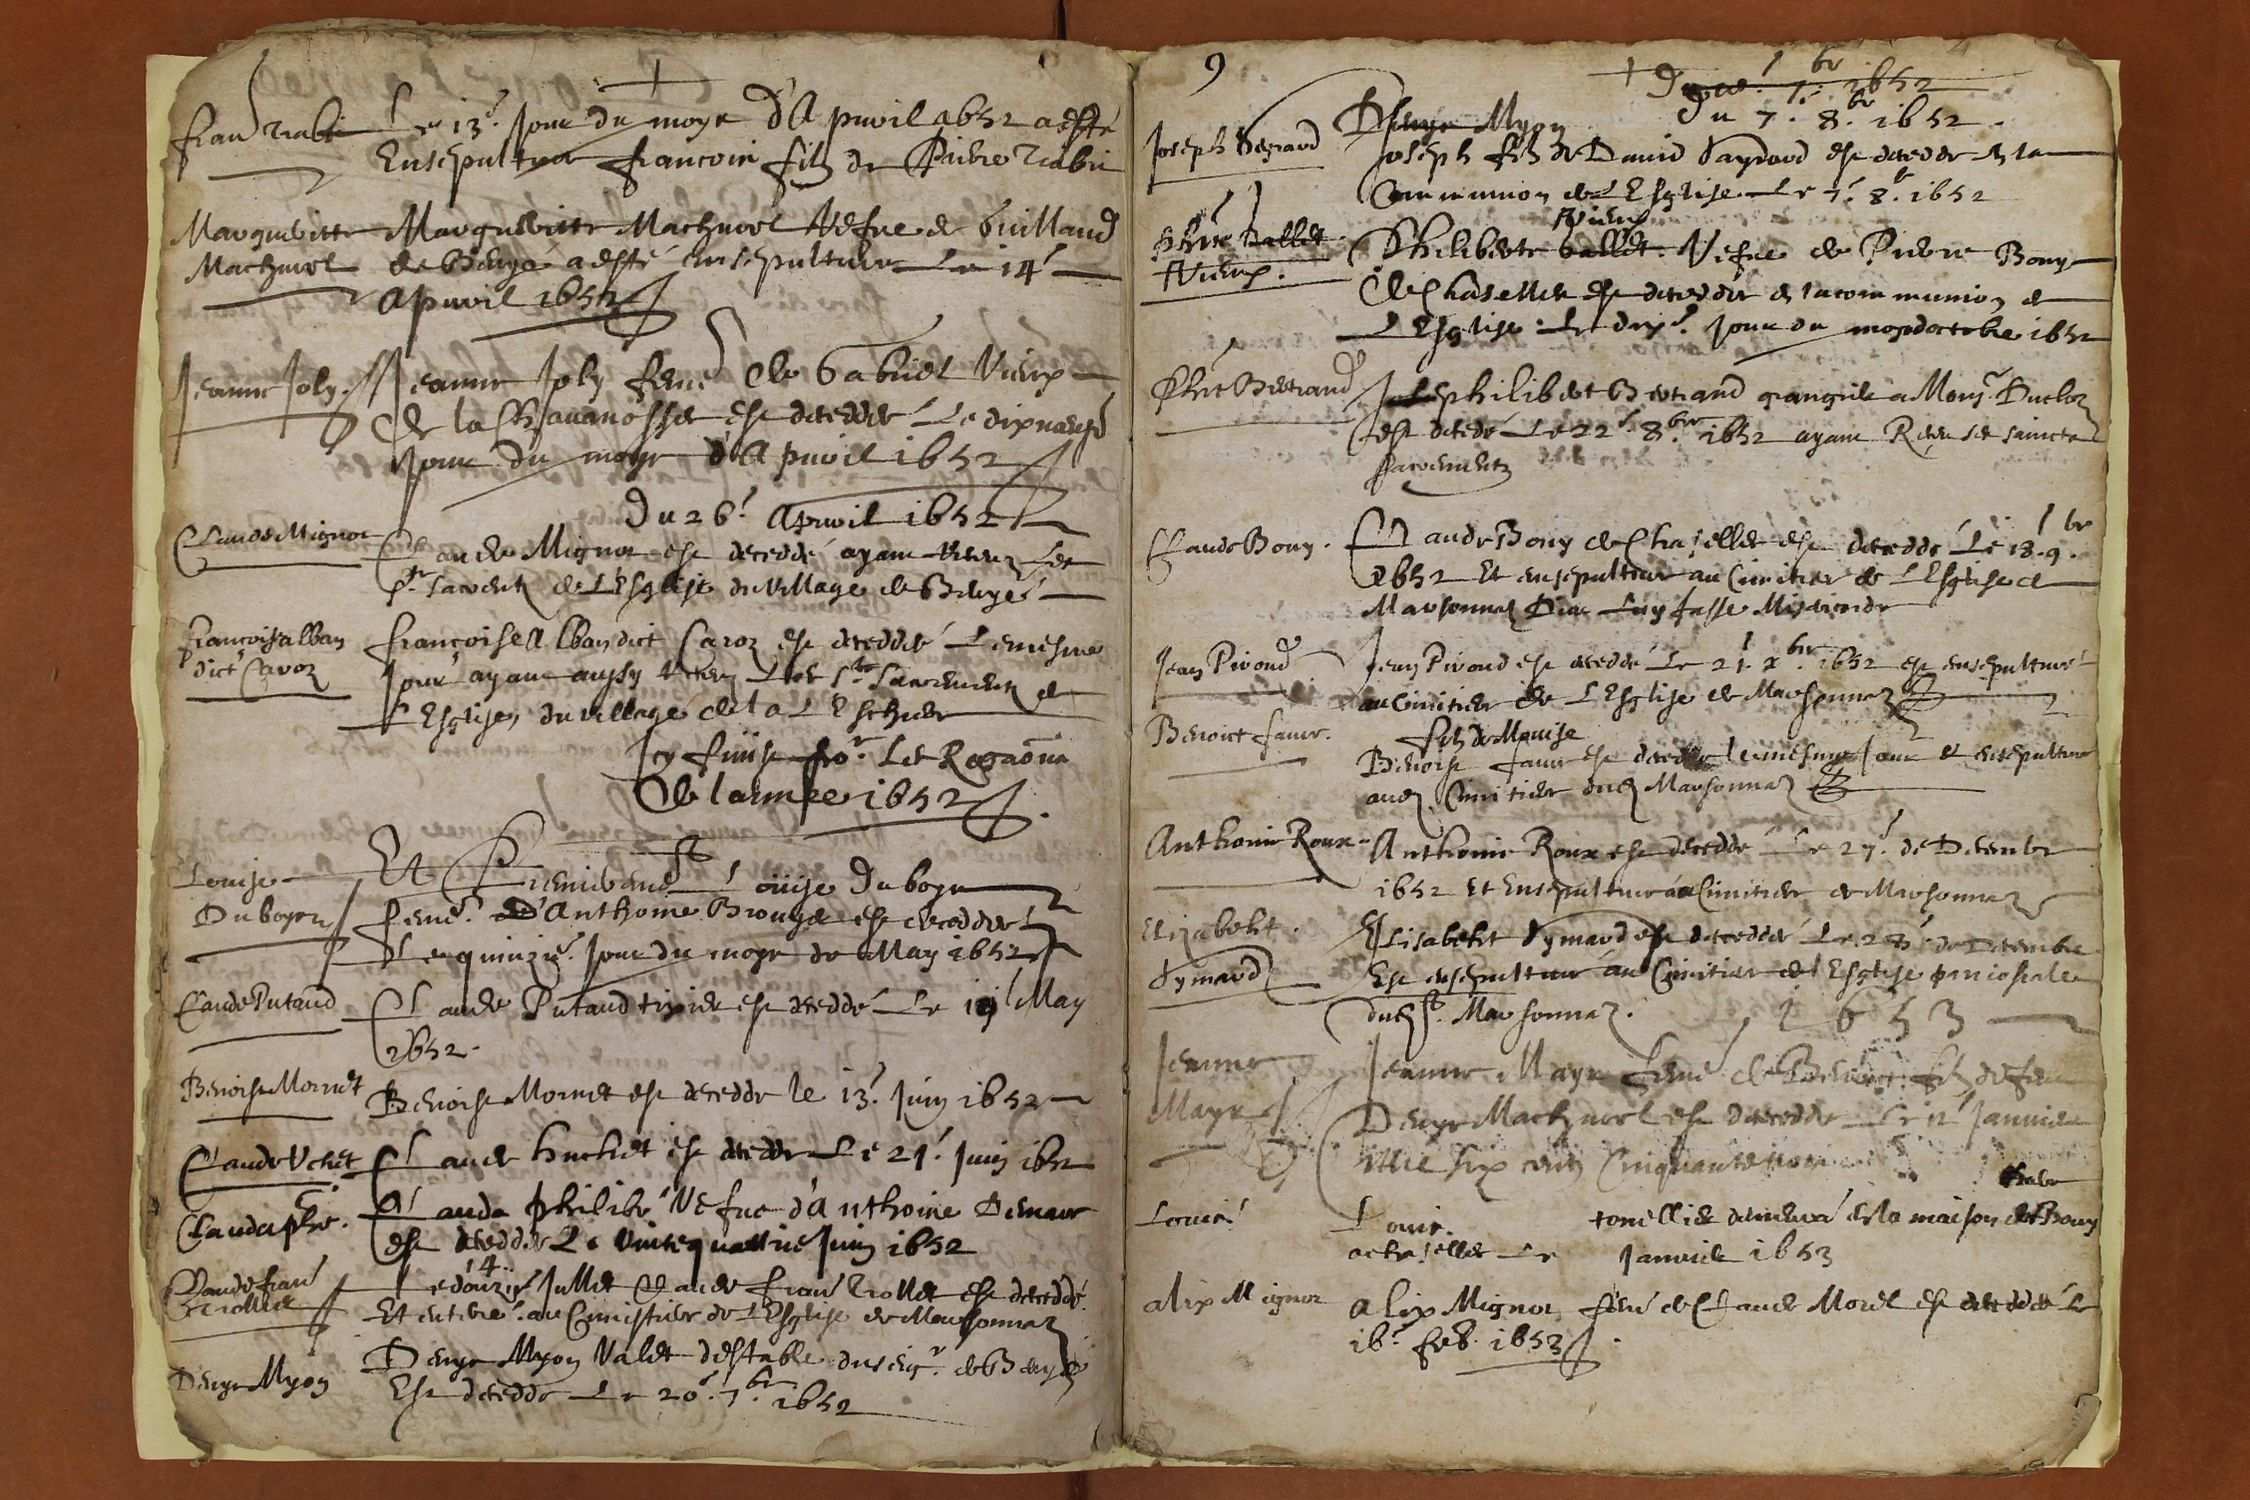 Le 13e. Jour du moys d'Apvril 1652 a esté
Ensepulturé francois filz de Pierre
Margueritte
Machurel
Margueritte Machurel Vefve de Guilland
de Beugé a esté ensepulturee Le 14e
Apvril 1652
Jeanne Joly.
Jeanne Joly feme de Gabriel Vieux
de la Chavanosse est decedde Le dixneuf
Jour du moys d'Apvril 1652
Du 26e. Apvril 1652
Claude Mignot
Claude Mignot est deceddé ayant receu Les
Sts. sacrentz de L'Esglise du village de Beugé
francoise alban
dict Caroz
francoise Alban dict Caroz est deceddé Le mesme
Jour ayant aussy receu Les Sts. Sacrementz de
L'Esglise, du village de la
Icy finist Les
de lannee 1652
Louise
Duboys
Et Premierement Louise Duboys
feme d'Anthoine est deceddee
Le quinzie. Jour du moys de May 1652
Claude Putaud
Claude Putaud tixier est deceddé Le May
1652.
Benoist Mornet
Benoist Mornet est decedde le 13e. Juin 1652
Claude Uchet
Claude huchet est decedde Le 21e. Juin 1652
Clauda phe.
Clauda philibe Vefve d'Anthoine
est decedde Le Vintequatrie Juin 1652
Claude fran
14
Le douzie Jullet Claude fran est deceddé.
Et enterré au Cimistiere de L'Esglise de Marsonnaz
Denys Myon
Denys Myon Valet d'estable du seigr. de Beugé
Est decedde Le 20e. 7br. 1652
9
1652
Du 7e. 8br. 1652.
Joseph
Denys Myon
Joseph filz de David est decedde en la
Communion de L'Esglise Le 7e. 8br. 1652
Vieux
Phte ballet
Vieux.
Philiberte ballet. Vefve de Pierre Bouy
de Chaselles est deceddee en la communion de
L'Esglise. Le dixe. Jour du moys d'octobre 1652
Phe Bertrand
philibert Bertrand grangier a Monsr. Duclos
est decedé Le 22e. 8bre 1652 ayant Receu ses saincts
sacrementz
Claude Bouy.
Claude Bouy de Chaselles est deceddé Le 18. 9bre.
1652 Et ensepulturé au Cimitier de L'Esglise de
Marsonnaz Dieu Luy fasse Misericorde
Jean Piroud
Jean Piroud est decedé Le 21e. xbre. 1652 est ensepulturé
au Cimitier de L'Esglise de Marsonnaz
Benoict favre.
filz de Mouise
Benoist favre est decedde le mesme Jour et ensepulturé
aud. Cimitier dud. Marsonnaz
Anthoine Roux
Anthoine Roux est deceddé Le 27e. de Decembre
1652 Et Ensepulturé au Cimitier de Marsonnaz
Elizabeht.
Symard
Elisabeht Symard est deceddée Le 28e. de Decembre
Est ensepulturee au Cimitier de l'Esglise parrochiale
dud. Marsonnaz.
1653
Jeanne
Mayr
Jeanne Mayr feme de Benoict filz de feu
Denys Machurel est deceddee Le 12e Janvier
Mil six cents Cinquante trois
Louis.
Louis. tonellier demeurant en la maison de Bouy
a chaselles Le Janvier 1653
Alix Mignot
Alix Mignot feme de Claude Morel est deceddé Le
16e. feb. 1653